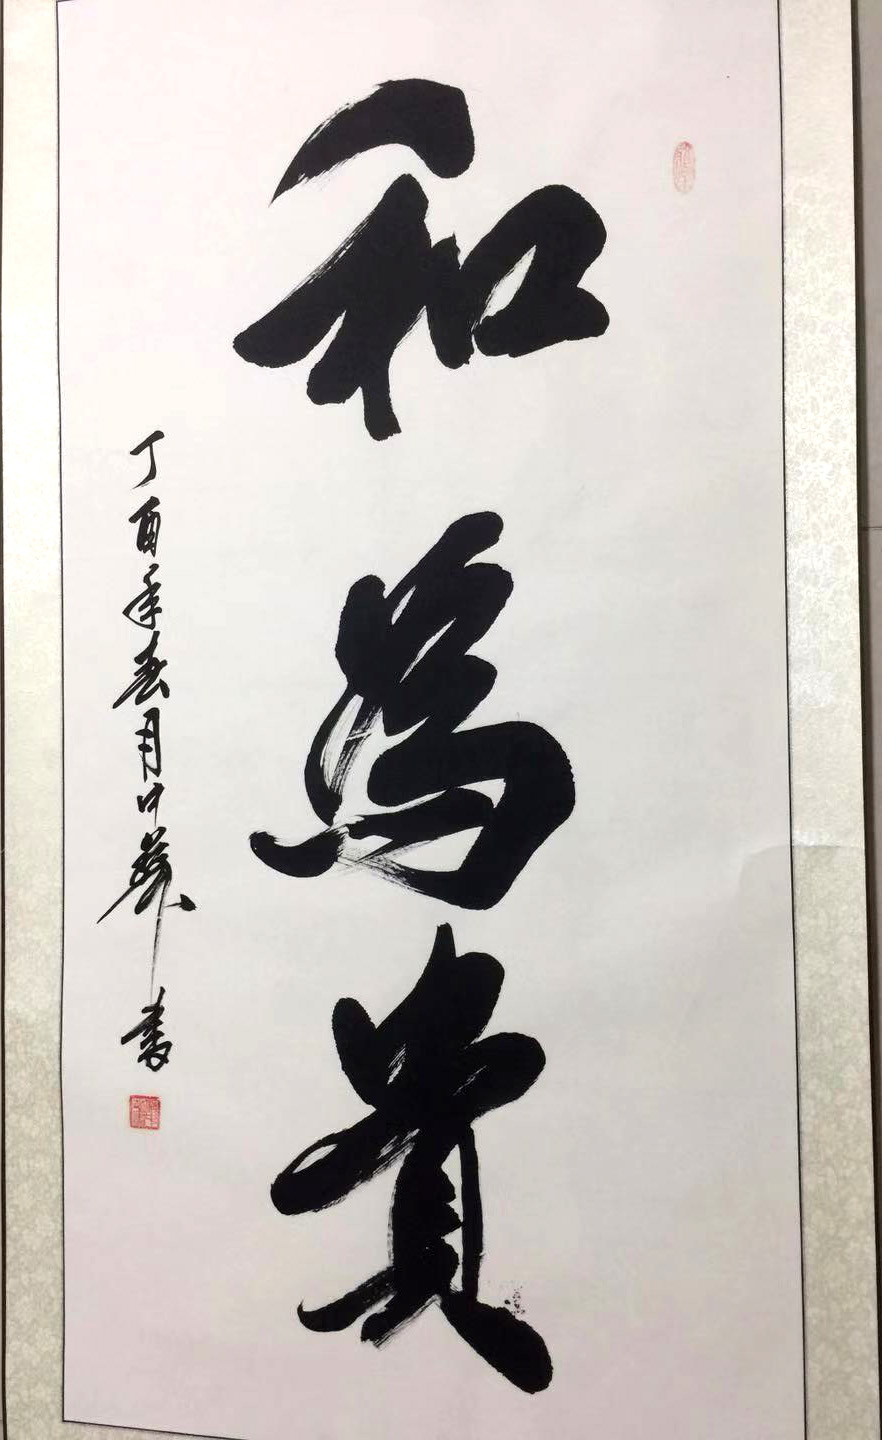 和為貴
丁酉年春月中華書